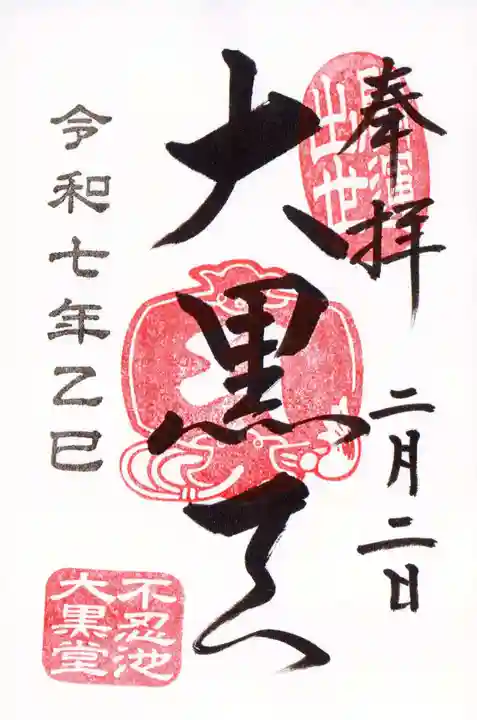 奉拝
開運
出世
二月二日
大黒天
令和七年乙巳
不忍池
大黒堂